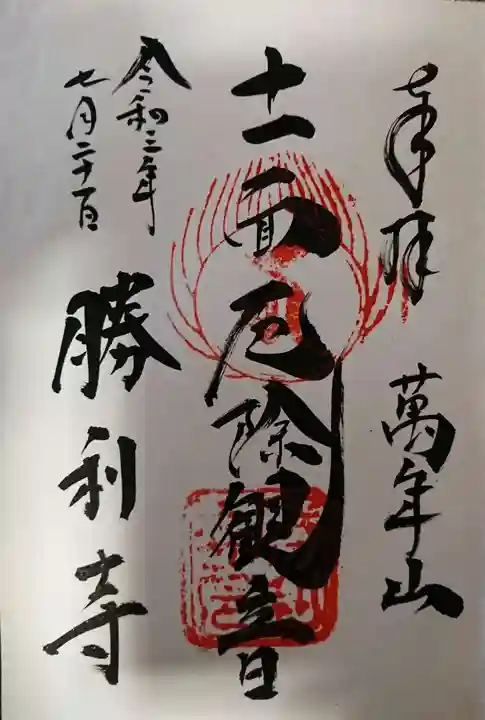 奉拝
萬年山
十一面厄除観音
令和三年
七月二十一日
勝利寺